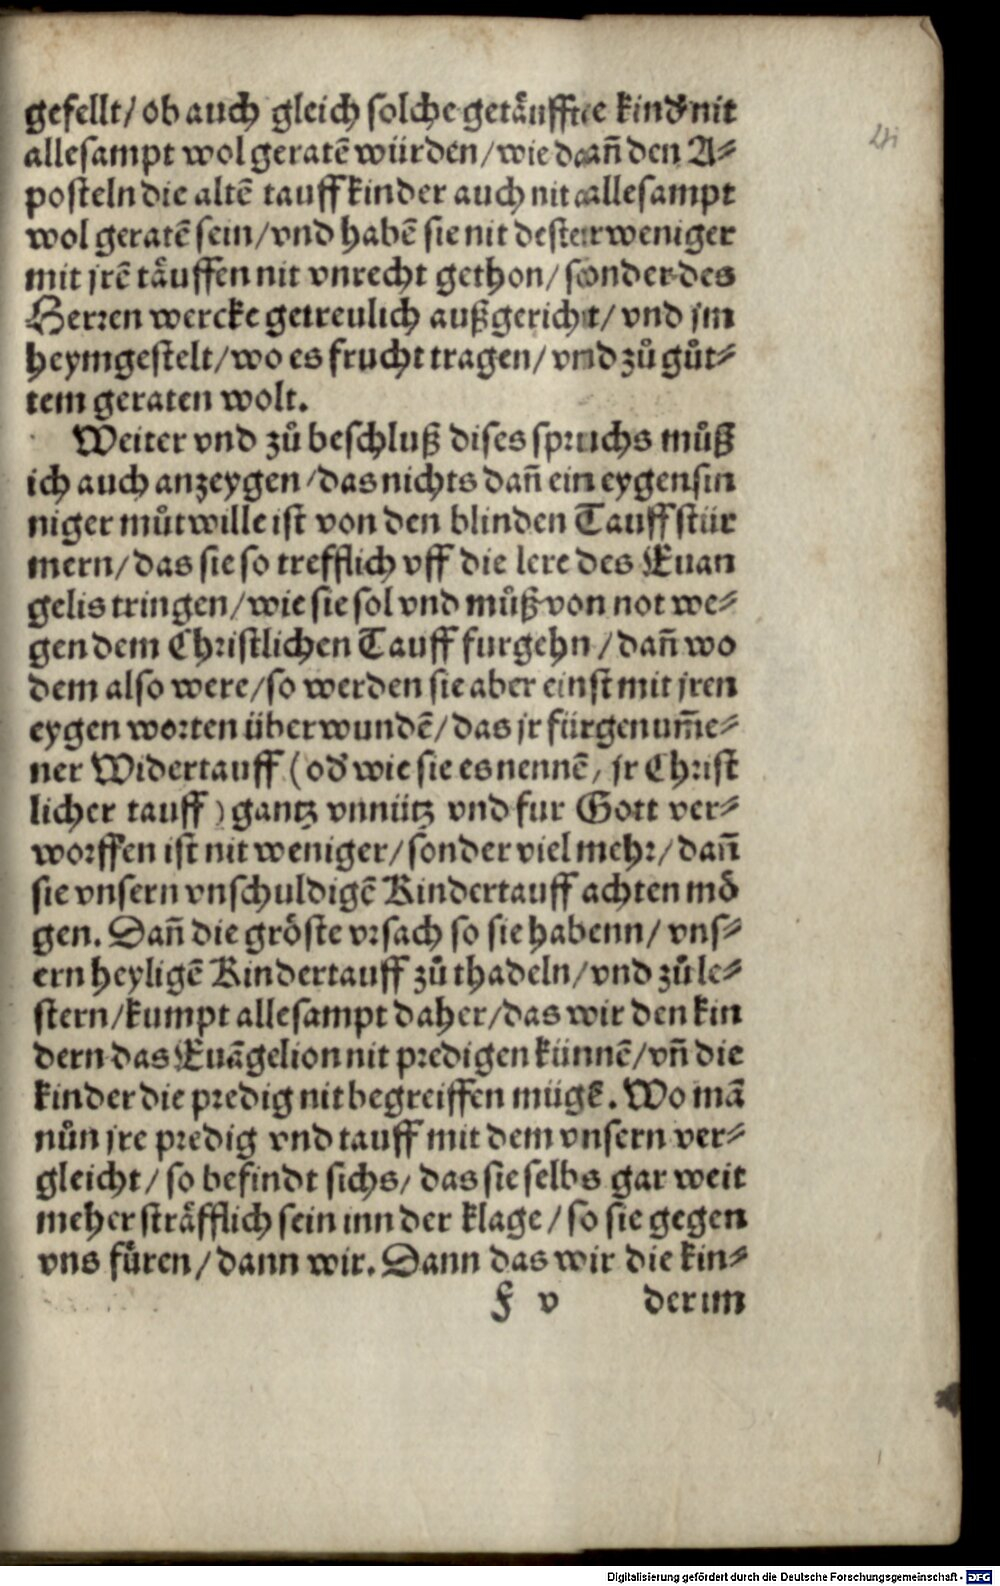 gefellt/ ob auch gleich solche getäuffte kindð nit
allesampt wol geratē würden/ wie dañ den A⸗
posteln die altē tauffkinder auch nit allesampt
wol geratē sein/ vnd habē sie nit dester weniger
mit jrē täuffen nit vnrecht gethon/ sonder des
Herren wercke getreulich außgericht/ vnd jm
heymgestelt/ wo es frucht tragen/ vnd zů gůt⸗
tem geraten wolt.
Weiter vnd zů beschluß dises spruchs můß
ich auch anzeygen/ das nichts dañ ein eygensin
niger můtwille ist von den blinden Tauffstür
mern/ das sie so trefflich vff die lere des Euan
gelis tringen/ wie sie sol vnd můß von not we⸗
gen dem Christlichen Tauff furgehn/ dañ wo
dem also were/ so werden sie aber einst mit jren
eygen worten überwundē/ das jr fürgenum̄e⸗
ner Widertauff (od̄ wie sie es nennē/ jr Christ
licher tauff) gantz vnnütz vnd fur Gott ver⸗
worffen ist nit weniger/ sonder viel mehr/ dañ
sie vnsern vnschuldigē Kindertauff achten mö
gen. Dañ die gröste vrsach so sie habenn/ vns⸗
ern heyligē Kindertauff zů thadeln/ vnd zů le⸗
stern/ kumpt allesampt daher/ das wir den kin
dern das Euāgelion nit predigen künnē/ vñ die
kinder die predig nit begreiffen mügē. Wo mā
nůn jre predig vnd tauff mit dem vnsern ver⸗
gleicht/ so befindt sichs/ das sie selbs gar weit
meher sträfflich sein inn der klage/ so sie gegen
vns füren/ dann wir. Dann das wir die kin⸗
F v derim
Digitalisierung gefördert durch die Deutsche Forschungsgemeinschaft - DFG